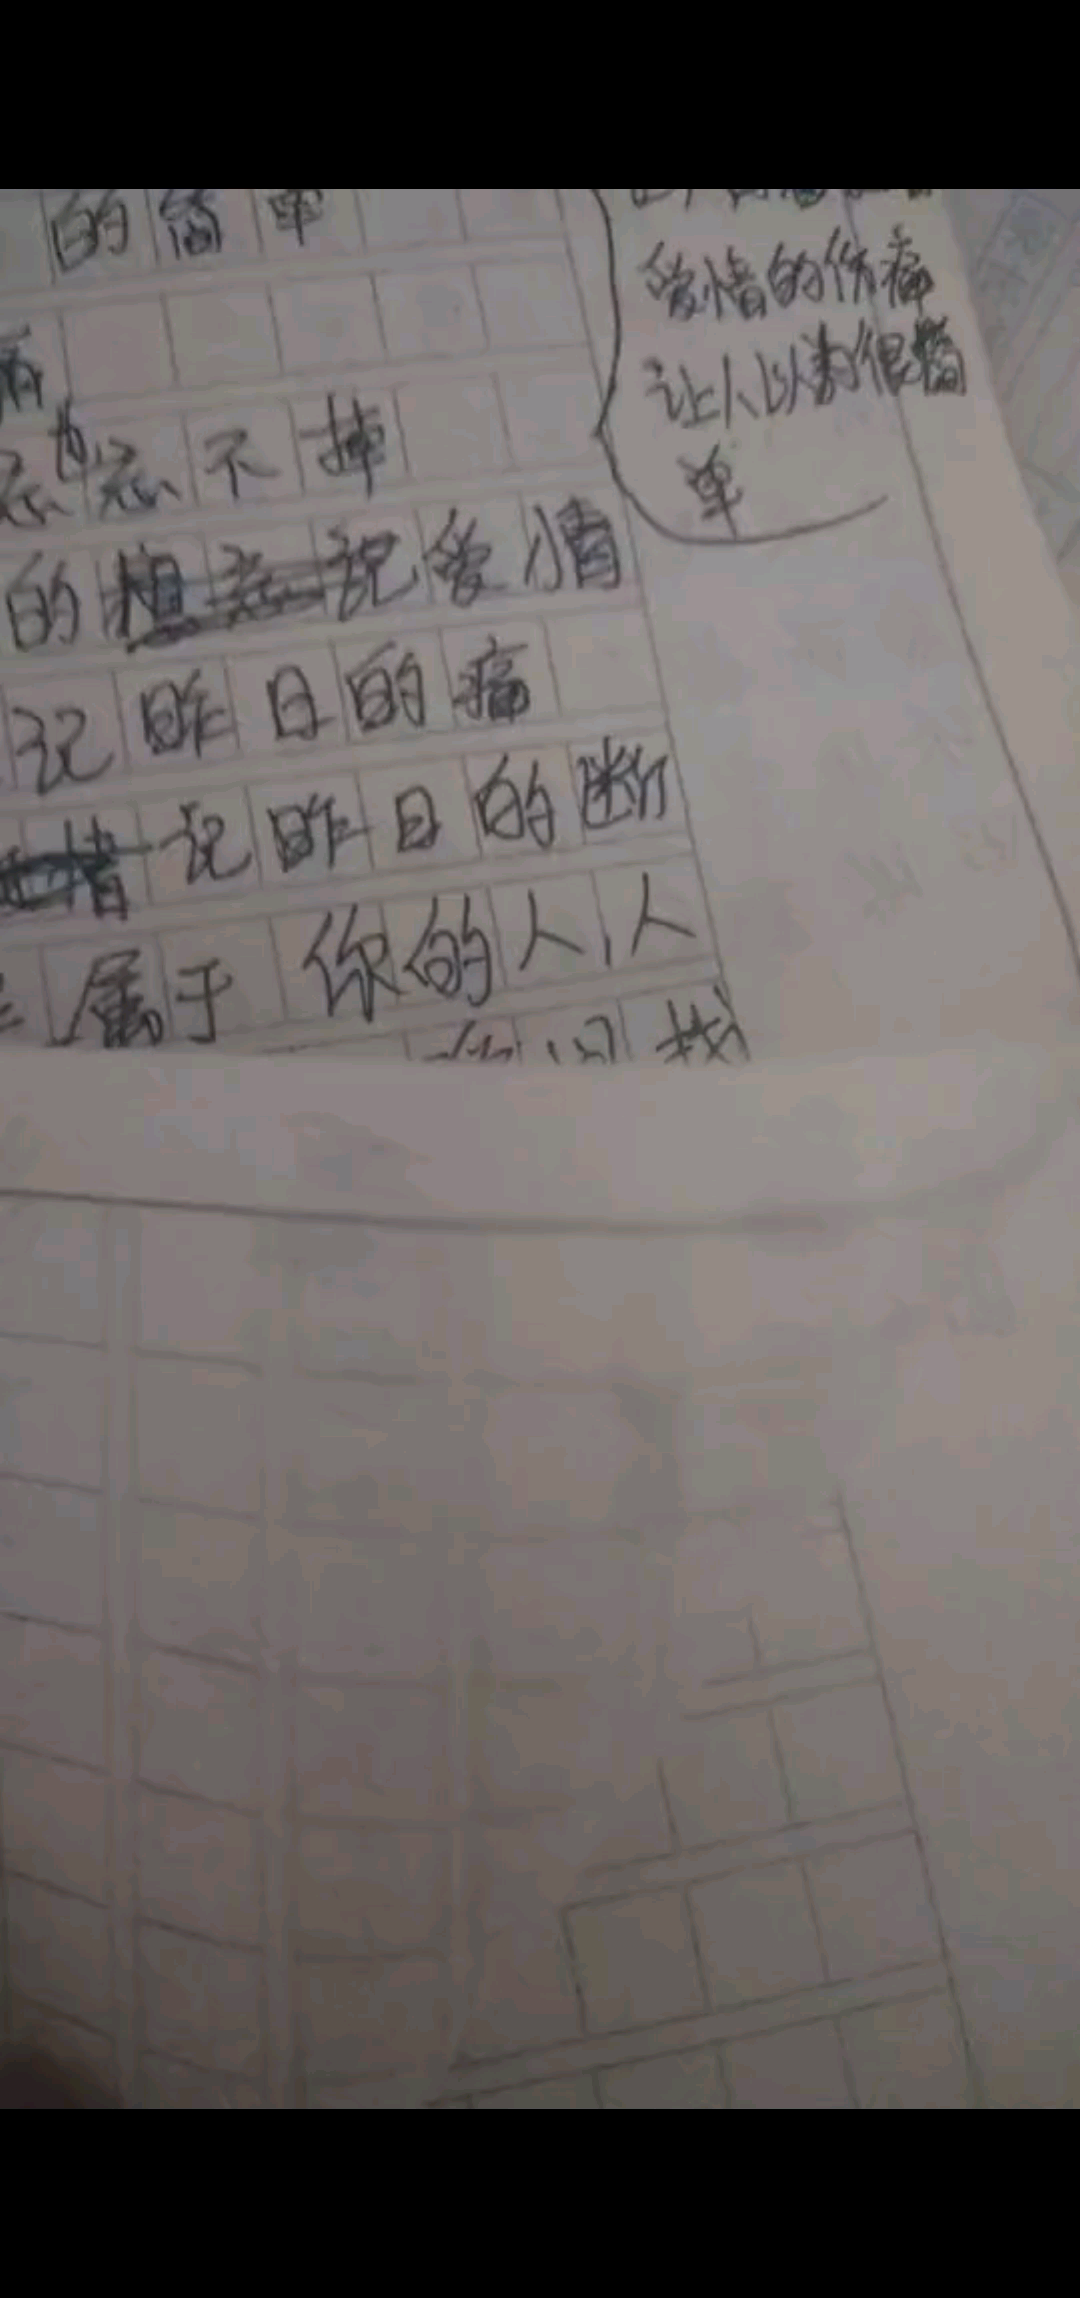 的简单
忘不掉
的说爱情
记昨日的痛
记昨日的断
属于你的人,人
找
爱情的伤痛
让人以为很简
单